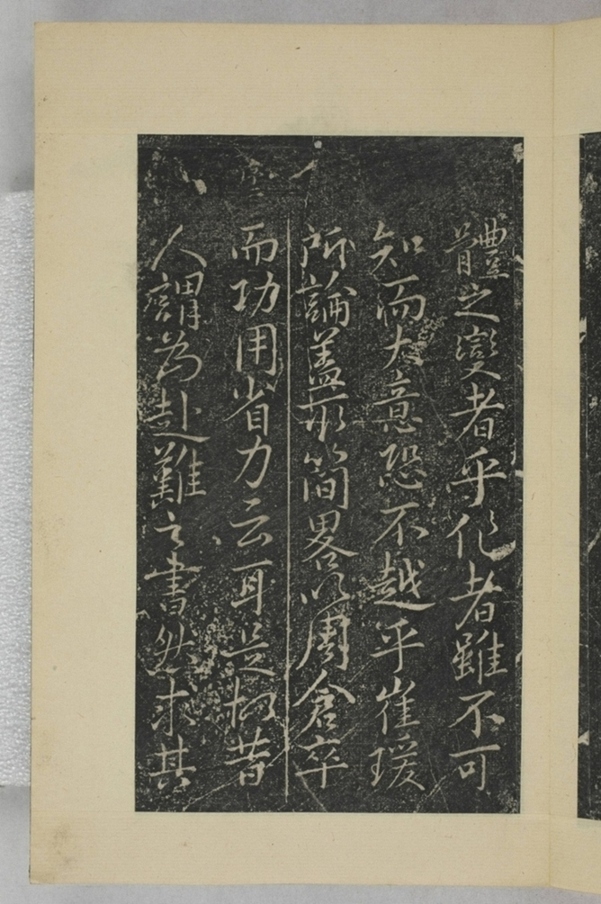 體之變者乎作者雖不可
知而大意恐不越乎崔瑗
所論蓋取簡畧以周倉卒
而功用省力云耳是故昔
人謂為赴難之書然求其